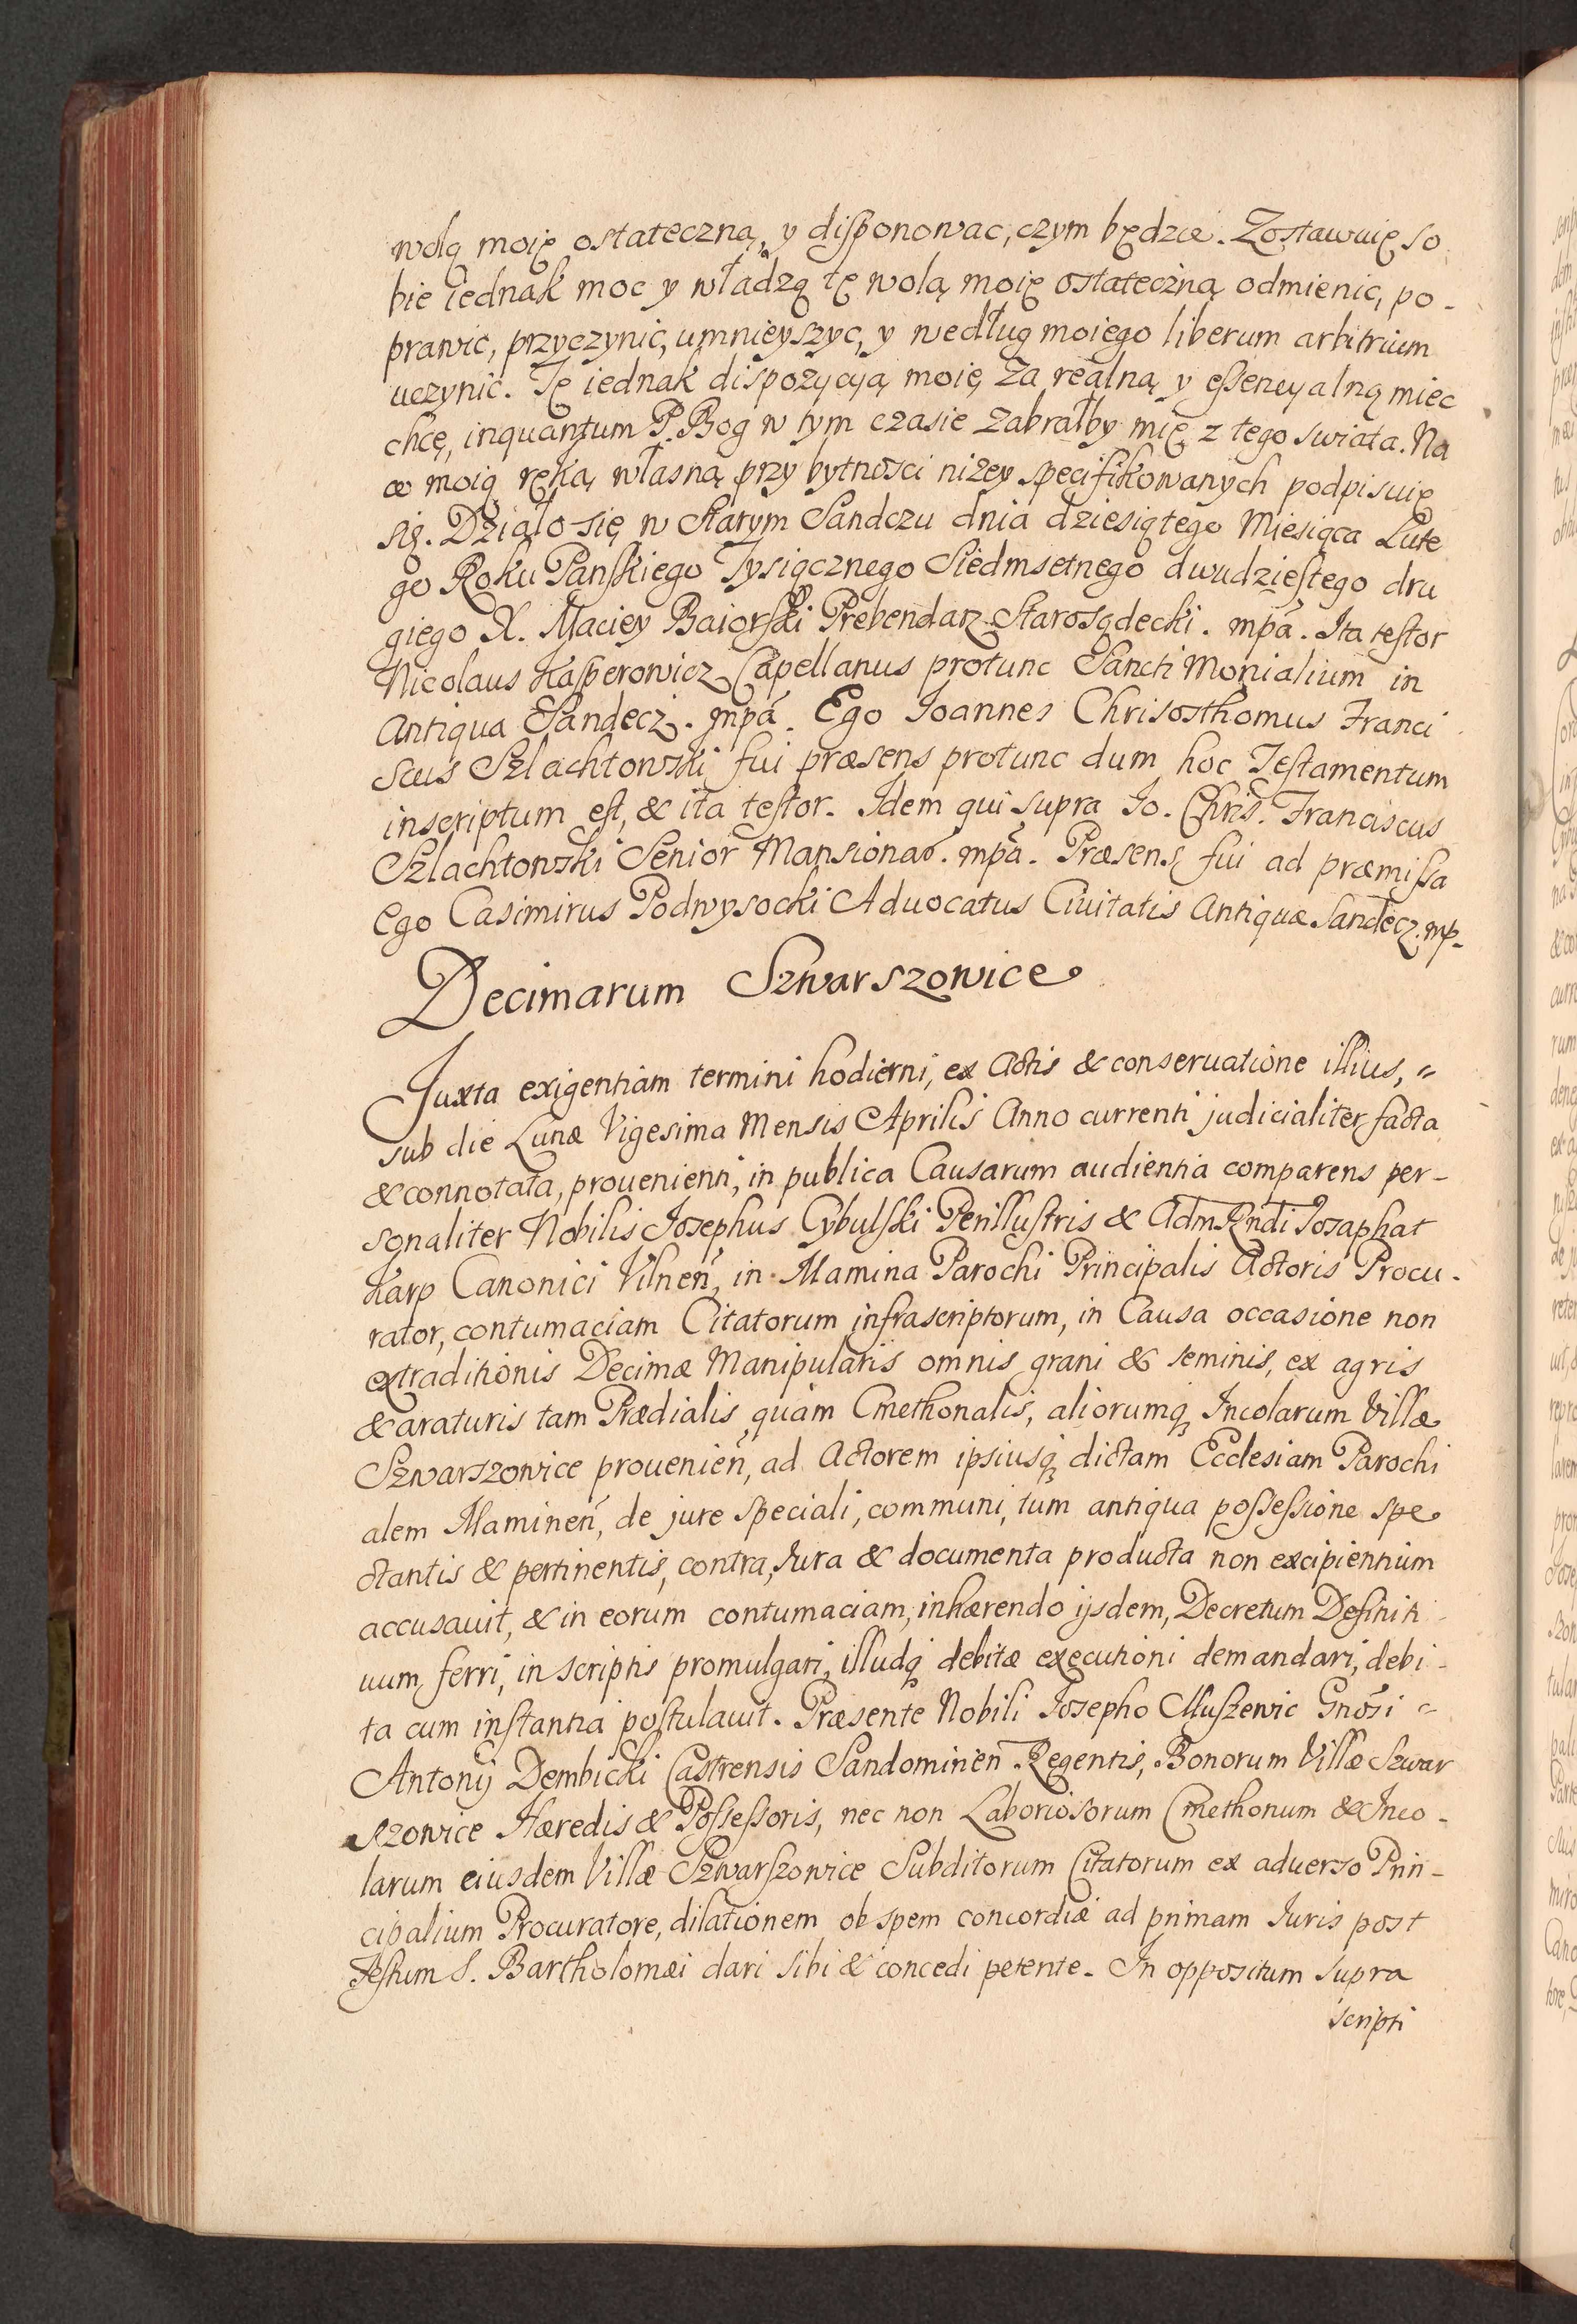 wolą moię ostateczną, y disponowac, czym będzie. Zostawuię so
bie iednak moc y władzą tę wolą moię ostateczną odmienic, po-
prawic, przyczynic, umnieyszyc, y według moiego liberum arbitrium
uczynic. Tę iednak dispozycyą moię za realną y essencyalną miec
chcę, inquantum P. Bog w tym czasie zabrałby mię z tego swiata. Na
co moią ręką własną przy bytności niżey specifikowanych podpisuię
się. Działo się w Starym Sandczu dnia dziesiątego Miesiąca Lute
go Roku Panskiego Tysiącznego Siedmsetnego dwudziestego dru
giego X. Maciey Baiorski Prebendarz Starosądecki. mpa. Ita testor
Nicolaus Kasperowicz Capellanus protunc Sancti Monialium in
Antiqua Sandecz. mpa. Ego Joannes Chrisosthomus Franci
scus Szlachtowski fui præsens protunc dum hoc Testamentum
inscriptum est, & ita testor. Idem qui supra Jo. Chris. Franciscus
Szlachtowski Senior Mansionar. mpa. Præsens fui ad præmissa
Ego Casimirus Podwysocki Aduocatus Ciuitatis Antiquæ Sandecz. mp.
Decimarum Szwarszowice
Juxta exigentiam termini hodierni, ex Actis & conseruatione illius, =
sub die Lunæ Vigesima Mensis Aprilis Anno currenti judicialiter facta
& connotata, prouenienti, in publica Causarum audientia comparens per-
sonaliter Nobilis Josephus Cybulski Perillustris & Adm Rndi Josaphat
Karp Canonici Vilnen, in Mamina Parochi Principalis Actoris Procu-
rator, contumaciam Citatorum infrascriptorum, in Causa occasione non
extraditionis Decimæ Manipularis omnis grani & seminis, ex agris
& araturis tam Prædialis, quàm Cmethonalis, aliorumq Incolarum Villæ
Szwarszowice prouenien, ad Actorem ipsiusq dictam Ecclesiam Parochi
alem Maminen, de jure speciali, communi, tum antiqua possessione spe
ctantis & pertinentis, contra Jura & documenta producta non excipientium
accusauit, & in eorum contumaciam, inhærendo ijsdem, Decretum Definiti
uum ferri, in scriptis promulgari, illudq debitæ executioni demandari, debi-
ta cum instantia postulauit. Præsente Nobili Josepho Muszewic Gnosi =
Antonij Dembicki Castrensis Sandomirien Regentis, Bonorum Villæ Szwar
szowice Hæredis & Possessoris, nec non Laboriosorum Cmethonum & Inco-
larum eiusdem Villæ Szwarszowice Subditorum Citatorum ex aduerso Prin-
cipalium Procuratore, dilationem ob spem concordiæ ad primam Juris post
Festum S. Bartholomæi dari sibi & concedi petente. In oppositum supra
scripti